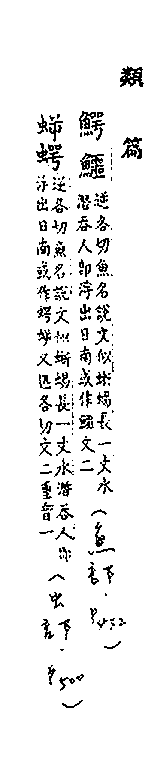 類篇
鰐鱷 逆各切魚名說文似蜥蜴長一丈水
潛吞人即浮出日南或作鱷文二
(魚書下, P422)
𧊜蝷 逆各切魚名說文似蜥蜴長一丈水潛吞人即
浮出日南或作蝷𧊜又逆各切文二重音一
(虫書下, P500)